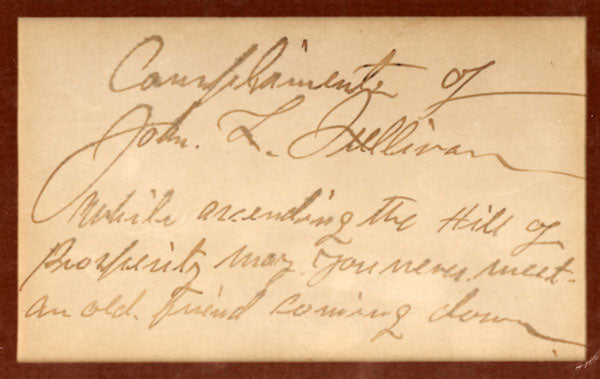 Compliments of
John. L. Sullivan
While ascending the Hill of
Prosperity may you never meet-
an old friend coming down